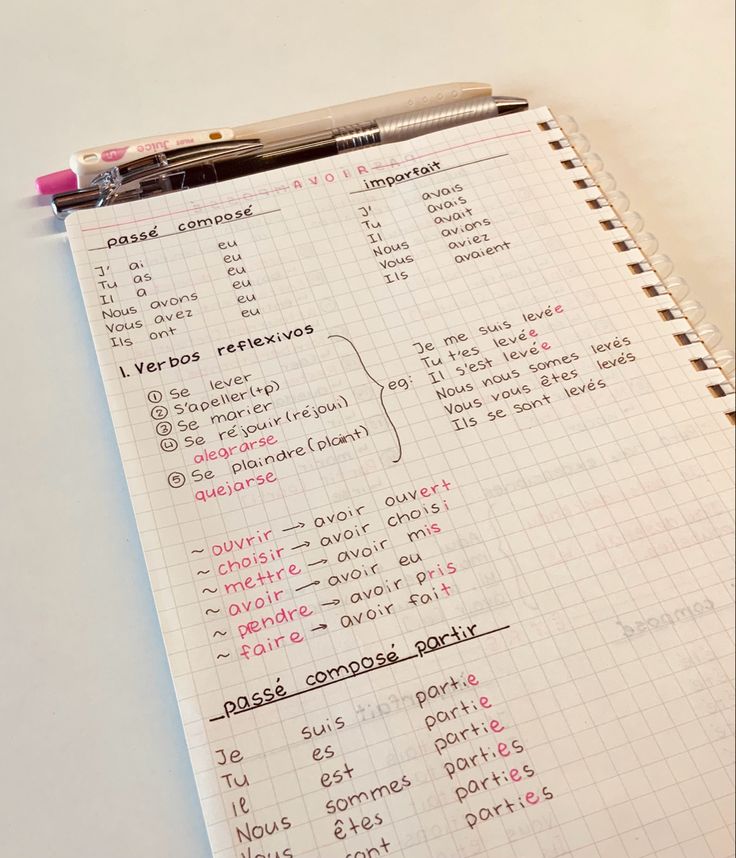 PILOT Juice 0.5
AVOIR
passé composé
J' ai eu
Tu as eu
Il a eu
Nous avons eu
Vous avez eu
Ils ont eu
imparfait
J' avais
Tu avais
Il avait
Nous avions
Vous aviez
Ils avaient
1. Verbos reflexivos
① Se lever
② S'apeller(+p)
③ Se marier
④ Se réjouir(réjoui)
alegrarse
⑤ Se plaindre(plaint)
quejarse
eg:
Je me suis levée
Tu t'es levée
Il s'est levée
Nous nous somes levés
Vous vous êtes levés
Ils se sont levés
~ ouvrir → avoir ouvert
~ choisir → avoir choisi
~ mettre → avoir mis
~ avoir → avoir eu
~ prendre → avoir pris
~ faire → avoir fait
passé composé partir
Je suis partie
Tu es partie
Il est partie
Nous sommes parties
Vous êtes parties
sont parties